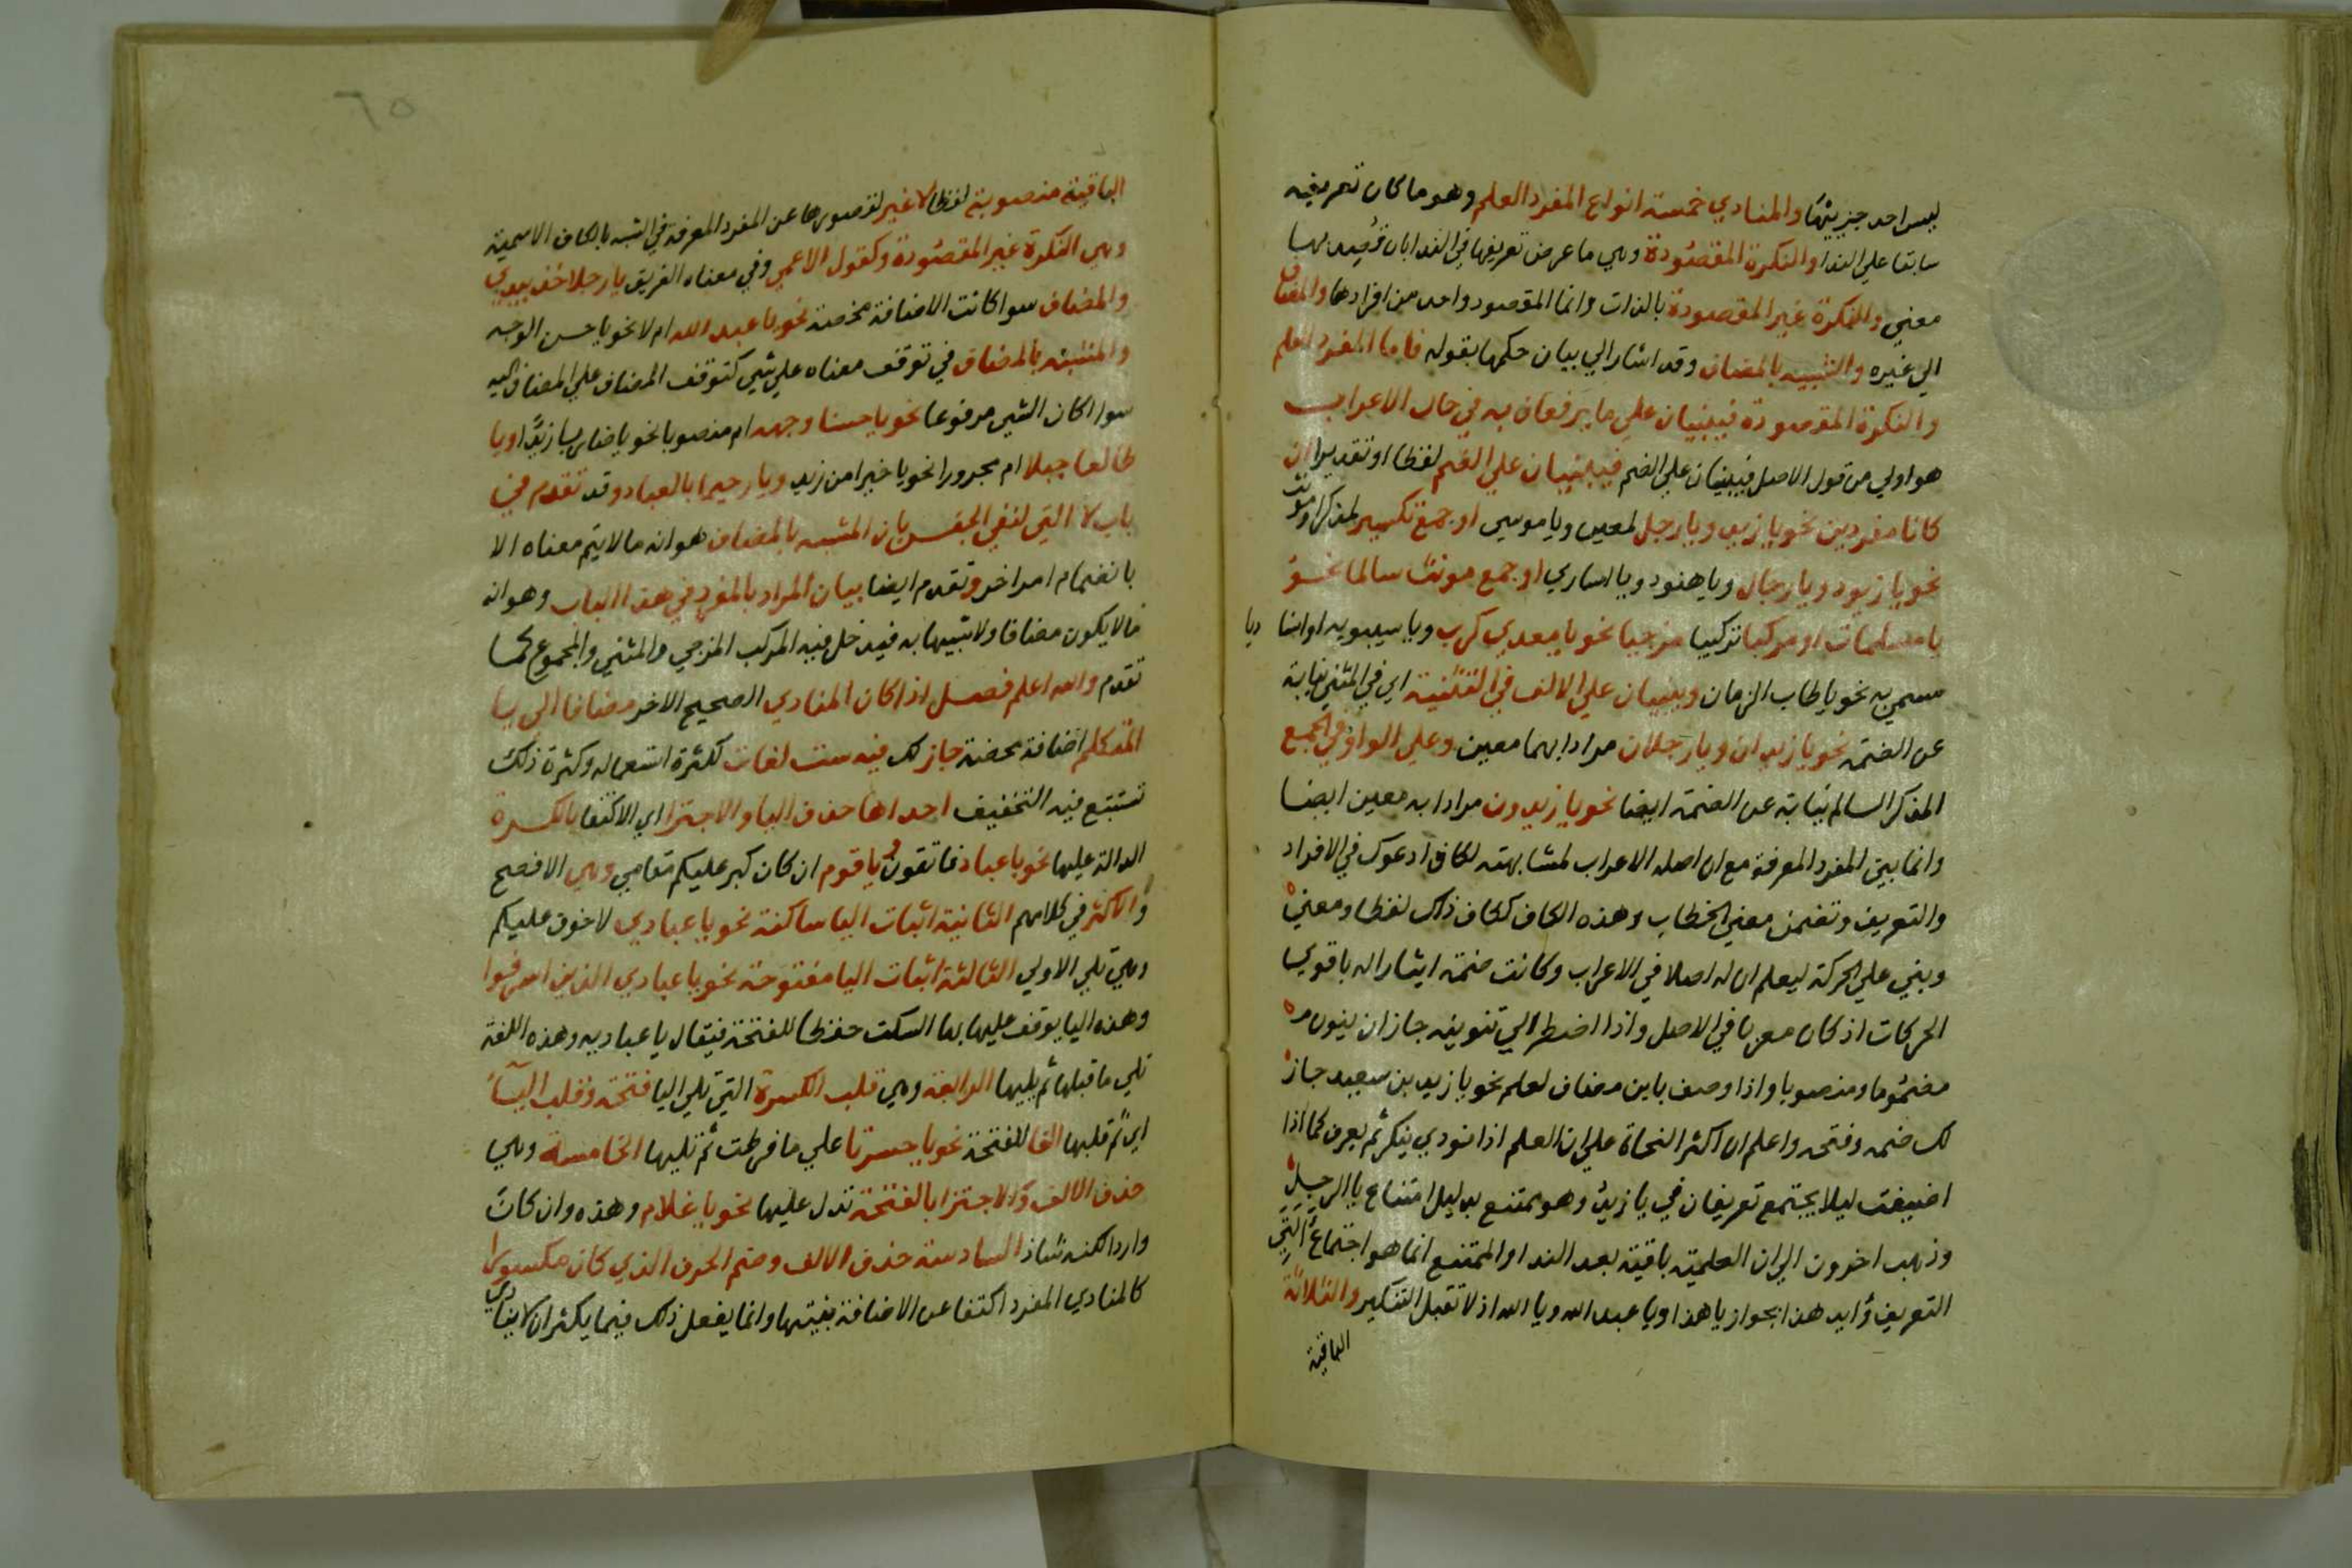 ليس احد جزييها والمنادي خمسة انواع المفرد العلم وهو ما كان تعريفه
سابقا علي الندا والنكرة المقصودة وهي ما عرض تعريفها في الندا بان قصد بها
معني والنكرة غير المقصودة بالذات وانما المقصود واحد من افرادها والمضاف
الي غيره والشبيه بالمضاف وقد اشار الي بيان حكمها بقوله فاما المفرد العلم
والنكرة المقصودة فيبنيان علي ما يرفعان به في حال الاعراب
هو اولي من قول الاصل فيبنيان علي الضم فيبنيان علي الضم لفظا او تقديرا ان
كانا مفردين نحو يا زيد ويا رجل لمعين ويا موسي او جمع تكسير لمذكر او مونث
نحو يا زيود ويا رجال ويا هنود ويا اساري او جمع مونث سالما نحو
يا مسلمات او مركبا تركيبا مزجيا نحو يا معدي كرب ويا سيبويه او اسنا ديا
سمي به نحو يا طاب الزمان ويبنيان علي الالف في التثنية اي في المثني نيابة
عن الضمة نحو يا زيدان ويا رجلان مرادا بهما معين وعلي الواو في الجمع
المذكر السالم نيابة عن الضمة ايضا نحو يا زيدون مرادا به معين ايضا
وانما بني المفرد المعرفة مع ان اصله الاعراب لمشابهته لكاف ادعوك في الافراد
والتعريف وتضمن معني الخطاب وهذه الكاف ككاف ذلك لفظا ومعني
وبني علي الحركة ليعلم ان له اصلا في الاعراب وكانت ضمة ايثارا له باقوي
الحركات اذ كان معربا في الاصل واذا اضطر الي تنوينه جاز ان ينون
مضموما ومنصوبا واذا وصف بابن مضاف لعلم نحو يا زيد بن سعيد جاز
لك ضمه وفتحه واعلم ان اكثر النحاة علي ان العلم اذا نودي ينكر ثم يعرف كما اذا
اضيفت ليلا يجتمع تعريفان في يا زيد وهو ممتنع بدليل امتناع يا الرجل
وذهب اخرون الي ان العلمية باقية بعد الندا والممتنع انما هو اجتماع التي
التعريف وايد هذا بجواز يا هذا ويا عبد الله ويا الله اذ لا تقبل التنكير والثلاثة
الباقية
٦٥
الباقية منصوبة لفظا لا غير لقصورها عن المفرد المعرفة في الشبه بالكاف الاسمية
وهي النكرة غير المقصودة وكقول الاعمي وفي معناه الغريق يا رجلا خذ بيدي
والمضاف سوا كانت الاضافة محضة نحو يا عبد الله ام لا نحو يا حسن الوجه
والمشبه بالمضاف في توقف معناه علي شي كتوقف المضاف علي المضاف اليه
سوا كان الشي مرفوعا نحو يا حسنا وجهه ام منصوبا نحو يا ضاربا زيدا ويا
طالعا جبلا ام مجرورا نحو يا خيرا من زيد ويا رحيما بالعباد وقد تقدم في
باب لا التي لنفي الجنس بان المشبه بالمضاف هو انه ما لا يتم معناه الا
بانضمام امر اخر وتقدم ايضا بيان المراد بالمفرد في هذا الباب وهو انه
ما لا يكون مضافا ولا شبيها به فيدخل فيه المركب المزجي والمثني والمجموع كما
تقدم والله اعلم فصل اذا كان المنادي الصحيح الاخر مضافا الي يا
المتكلم اضافة محضة جاز لك فيه ست لغات لكثرة استعماله وكثرة ذلك
تستتبع فيه التخفيف احداها حذف اليا والاجتزا اي الاكتفا بالكسرة
الدالة عليها نحو يا عباد فاتقون ويا قوم ان كان كبر عليكم مقامي وهي الافصح
والاكثر في كلامهم الثانية اثبات اليا ساكنة نحو يا عبادي لا خوف عليكم
وهي تلي الاولي الثالثة اثبات اليا مفتوحة نحو يا عبادي الذين اسرفوا
وهذه اليا يوقف عليها بها السكت حفظا للفتحة فيقال يا عباديه وهذه اللغة
تلي ما قبلها ثم يليها الرابعة وهي قلب الكسرة التي تلي اليا فتحة وقلب اليآء
اي ثم قلبها الفا للفتحة نحو يا حسرتا علي ما فرطت ثم تليها الخامسة وهي
حذف الالف والاجتزا بالفتحة تدل عليها نحو يا غلام وهذه وان كان
واردا لكنه شاذ السادسة حذف الالف وضم الحرف الذي كان مكسورا
كالمنادي المفرد اكتفا عن الاضافة بنيتها وانما يفعل ذلك فيما يكثر ان لا ينادي